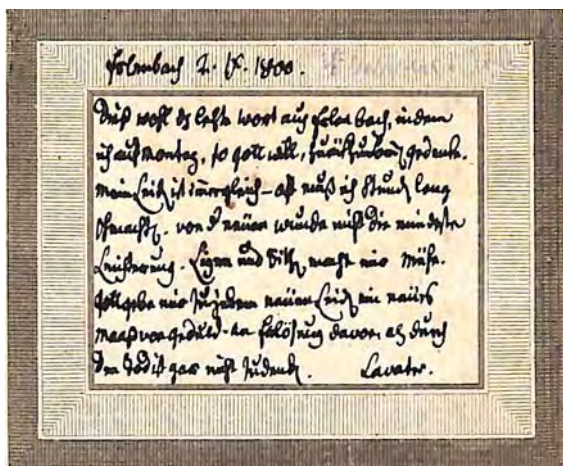 Erlenbach 2. IX. 1800.
Dieß wohl ds letzte wort aus Erlenbach, indem
ich auf Montag, so Gott will, gedenke.
Mein Leiden ist immer gleich – oft muß ich Stunden lang
von neüen wunde nicht die mindeste
Leichterung. Ligen und Sitzen macht mir Mühe.
Gott gebe mir zu jedem neüen Leiden ein neües
Maaß von Geduld – an Erlösung davon als durch
den Tod ist gar nicht zu denken. Lavater.